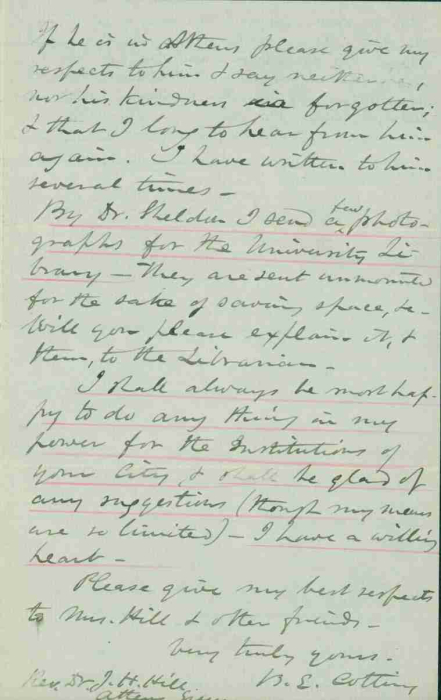 If he is in Athens please give my
respects to him & say neither he,
nor his kindness is forgotten;
& that I long to hear from him
again. I have written to him
several times -
By Dr. Sheldon I send a few photo-
graphs for the University Li-
brary - They are sent unmounted
for the sake of saving space, &c-
Will you please explain it, &
them, to the Librarian -
I shall always be most hap-
py to do any thing in my
power for the Institutions of
your City, & shall be glad of
any suggestions (though my means
are so limited) - I have a willing
heart -
Please give my best respects
to Mrs. Hill & other friends -
Very truly yours -
B. E. Cotting
Rev. Dr J. H. Hill
Athens